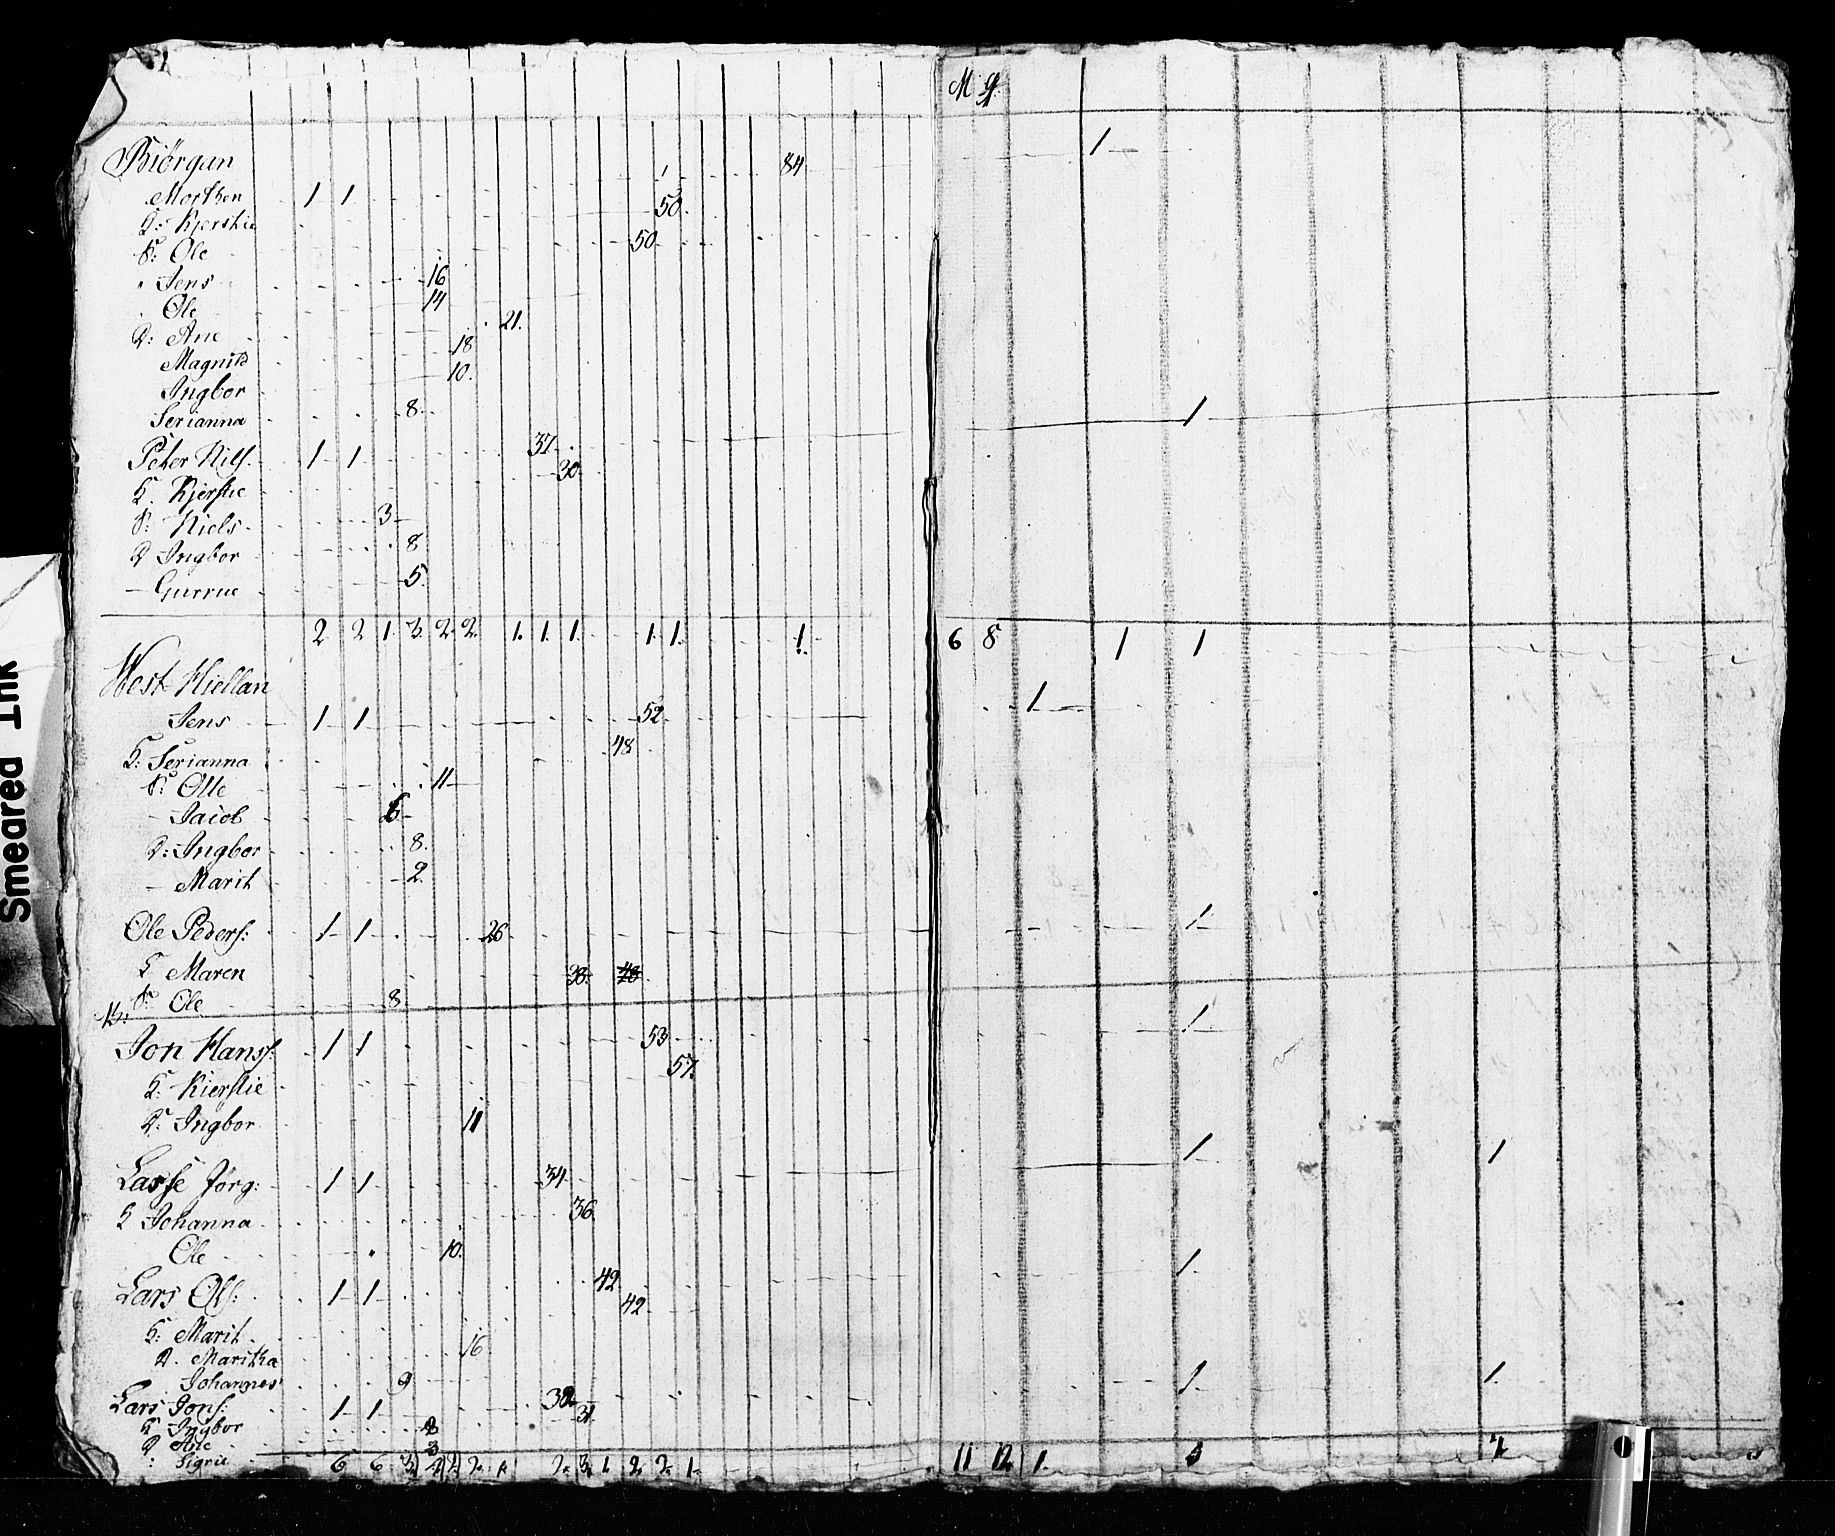 M
Biörgan 84 1
Morthen 1 1 50
Q: Kjerstie 50
S: Ole
" Jens 16
Ole 14
D: Ane 21.
Magnild 18
Ingbor 10.
Serianna 8 1
Peter Nils. 1 1 37
K. Kjerstie 30
S: Niels 3
D Ingbor 8
– Gurrue 5
2 2 1 3. 2 2. 1. 1. 1. 1. 1. 1. 6 8 1 1
West Hiellan
Jens 1 1 52 1
K: Serianna 48
S: Olle 11
– Jaiob 6
D: Ingbor 8.
– Marit 2
Ole Peders: 1 1 26 1
K Maren 38.
S: Ole 8
Jon Hanss: 1 1 53 1
K: Kierstie 57.
D: Ingbor 11
Lasse Jörg: 1 1 34 1 1
K Johanna 36
Ole 10
Lars Ols: 1 1 42 1
K: Marit 42
D. Maritha 16
Johannes 9
Lars Jons: 1 1 1 1
K Ingbor 31
D Ane
: Sigrie
6 6 3 4 2. 1. 2. 3. 1. 2. 2. 1. 11 12 1.
Smeared Ink